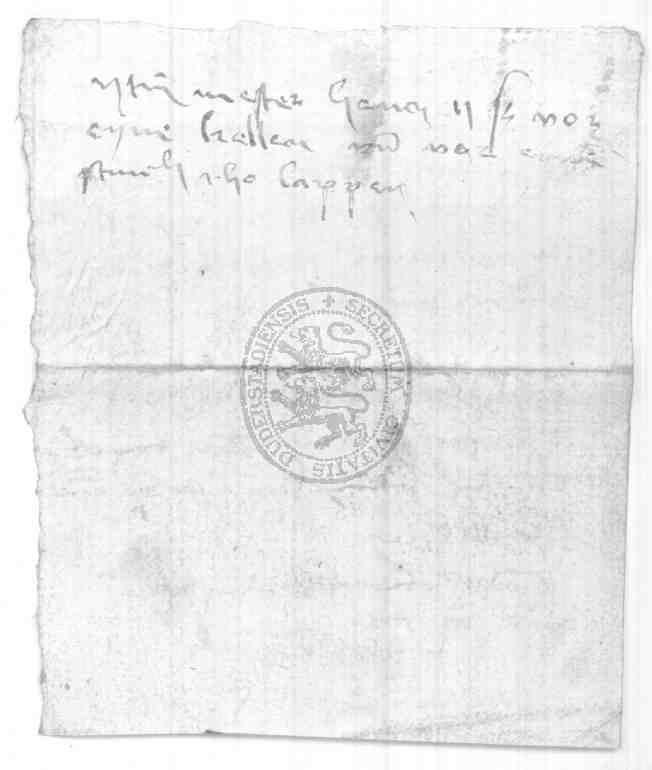 ytm̄ mester Henrr ij ß vor
eyne kellen vn̄ vor
stucke tho lappen
SECRETUM CIVITATIS DUDERSTADIENSIS